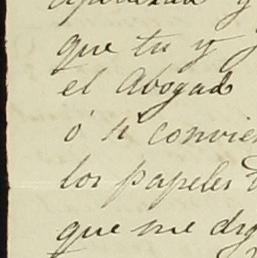 que tu y
el Abogado
ó si convie
los papeles
que me dig